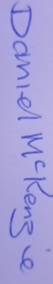 Daniel McKenzie